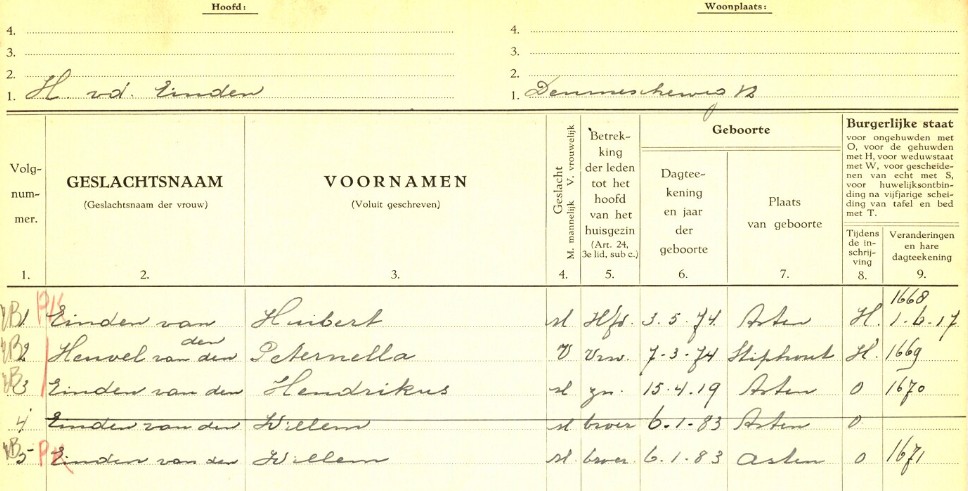 Hoofd: Woonplaats:
4. 4.
3. 3.
2. 2.
1. H vd. Einden 1. Dennescheweg 12
Volg-
num-
mer.
GESLACHTSNAAM
(Geslachtsnaam der vrouw)
VOORNAMEN
(Voluit geschreven)
Geslacht
M. mannelijk V. vrouwelijk
Betrek-
king
der leden
tot het
hoofd
van het
huisgezin
(Art. 24,
3e lid, sub c.)
Geboorte
Dagtee-
kening
en jaar
der
geboorte
Plaats
van geboorte
Burgerlijke staat
voor ongehuwden met
O, voor de gehuwden
met H, voor weduwstaat
met W, voor gescheide-
nen van echt met S,
voor huwelijksontbin-
ding na vijfjarige schei-
ding van tafel en bed
met T.
Tijdens
de in-
schrij-
ving
Veranderingen
en hare
dagteekening
1. 2. 3. 4. 5. 6. 7. 8. 9.
1668
VB 1 PK Einden van den Huibert M Hfd. 3.5.74 Asten H. 1-6-17
VB 2 Heuvel van den Peternella V Vrw. 7-3-74 Stiphout H. 1669
VB 3 Einden van den Hendrikus M zn. 15.4.19 Asten O 1670
4 Einden van den Willem M broer 6-1-83 Asten O
VB 5 PK Einden van den Willem M broer 6.1.83 Asten O 1671